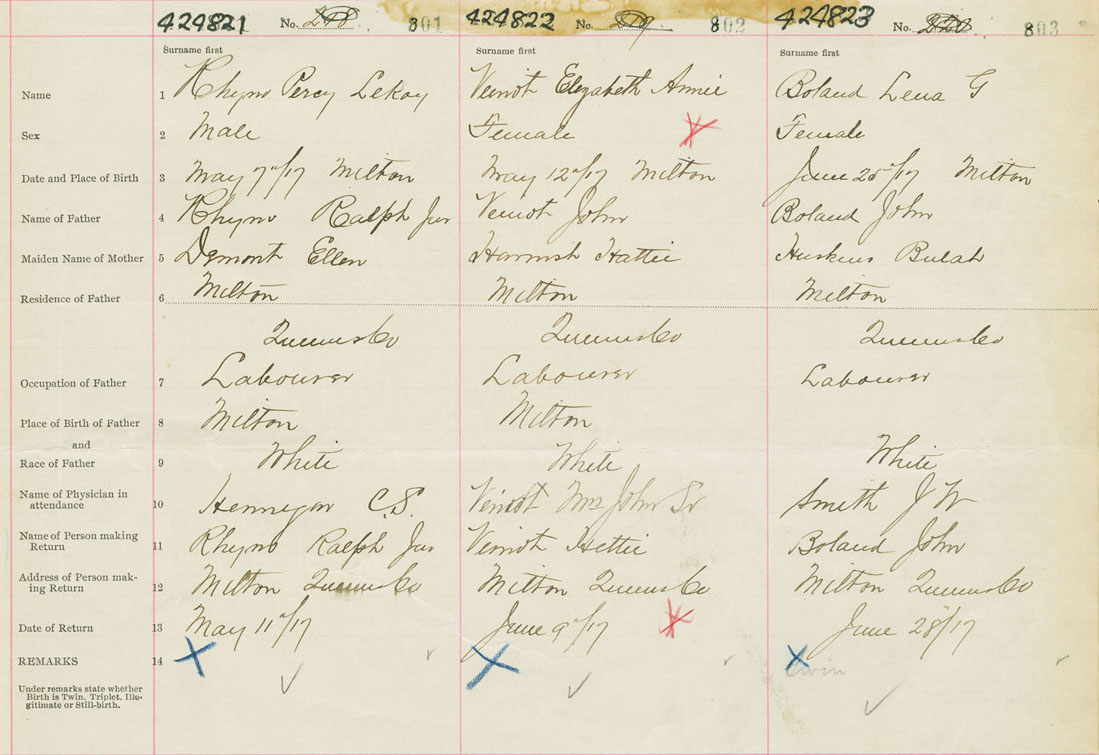 424821 No. 801 424822 No. 219 802 424823 No. 803
Surname first Surname first Surname first
Name 1 Rhyno Percy LeRoy Veinot Elizabeth Annie Boland Lena G
Sex 2 Male Female Female
Date and Place of Birth 3 May 7"/17 Milton May 12"/17 Milton June 28"/17 Milton
Name of Father 4 Rhyno Ralph Jur Veinot John Boland John
Maiden Name of Mother 5 Demont Ellen Harnish Hattie Huskins Bulah
Residence of Father 6 Milton Milton Milton
Queens Co Queens Co Queens Co
Occupation of Father 7 Labourer Labourer Labourer
Place of Birth of Father 8 Milton Milton
and
Race of Father 9 White White White
Name of Physician in
attendance 10 Hennigar C.S. Veinot Mrs John Sr Smith J W
Name of Person making
Return 11 Rhyno Ralph Jur Veinot Hettie Boland John
Address of Person mak-
ing Return 12 Milton Queens Co Milton Queens Co Milton Queens Co
Date of Return 13 May 11"/17 June 9"/17 June 28"/17
REMARKS 14 Twin
Under remarks state whether
Birth is Twin, Triplet, Ille-
gitimate or Still-birth.